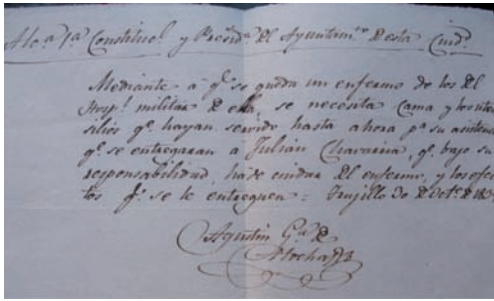 Constituc.l y Presid.te del Ayuntam.to de esta Ciud.d
Mediante á q.e se queda un enfermo de los del
Hosp.l militar de ella, se necesita Cama y los uten
silios q.e hayan servido hasta ahora p.a su asistencia
q.e se entregaran a Julián Chavarina, q.e bajo su
responsabilidad, ha de cuidar del enfermo, y los efec
tos q.e se le entreguen = Trujillo 30 de Oct.e de
Agustin G.a de
Atocha